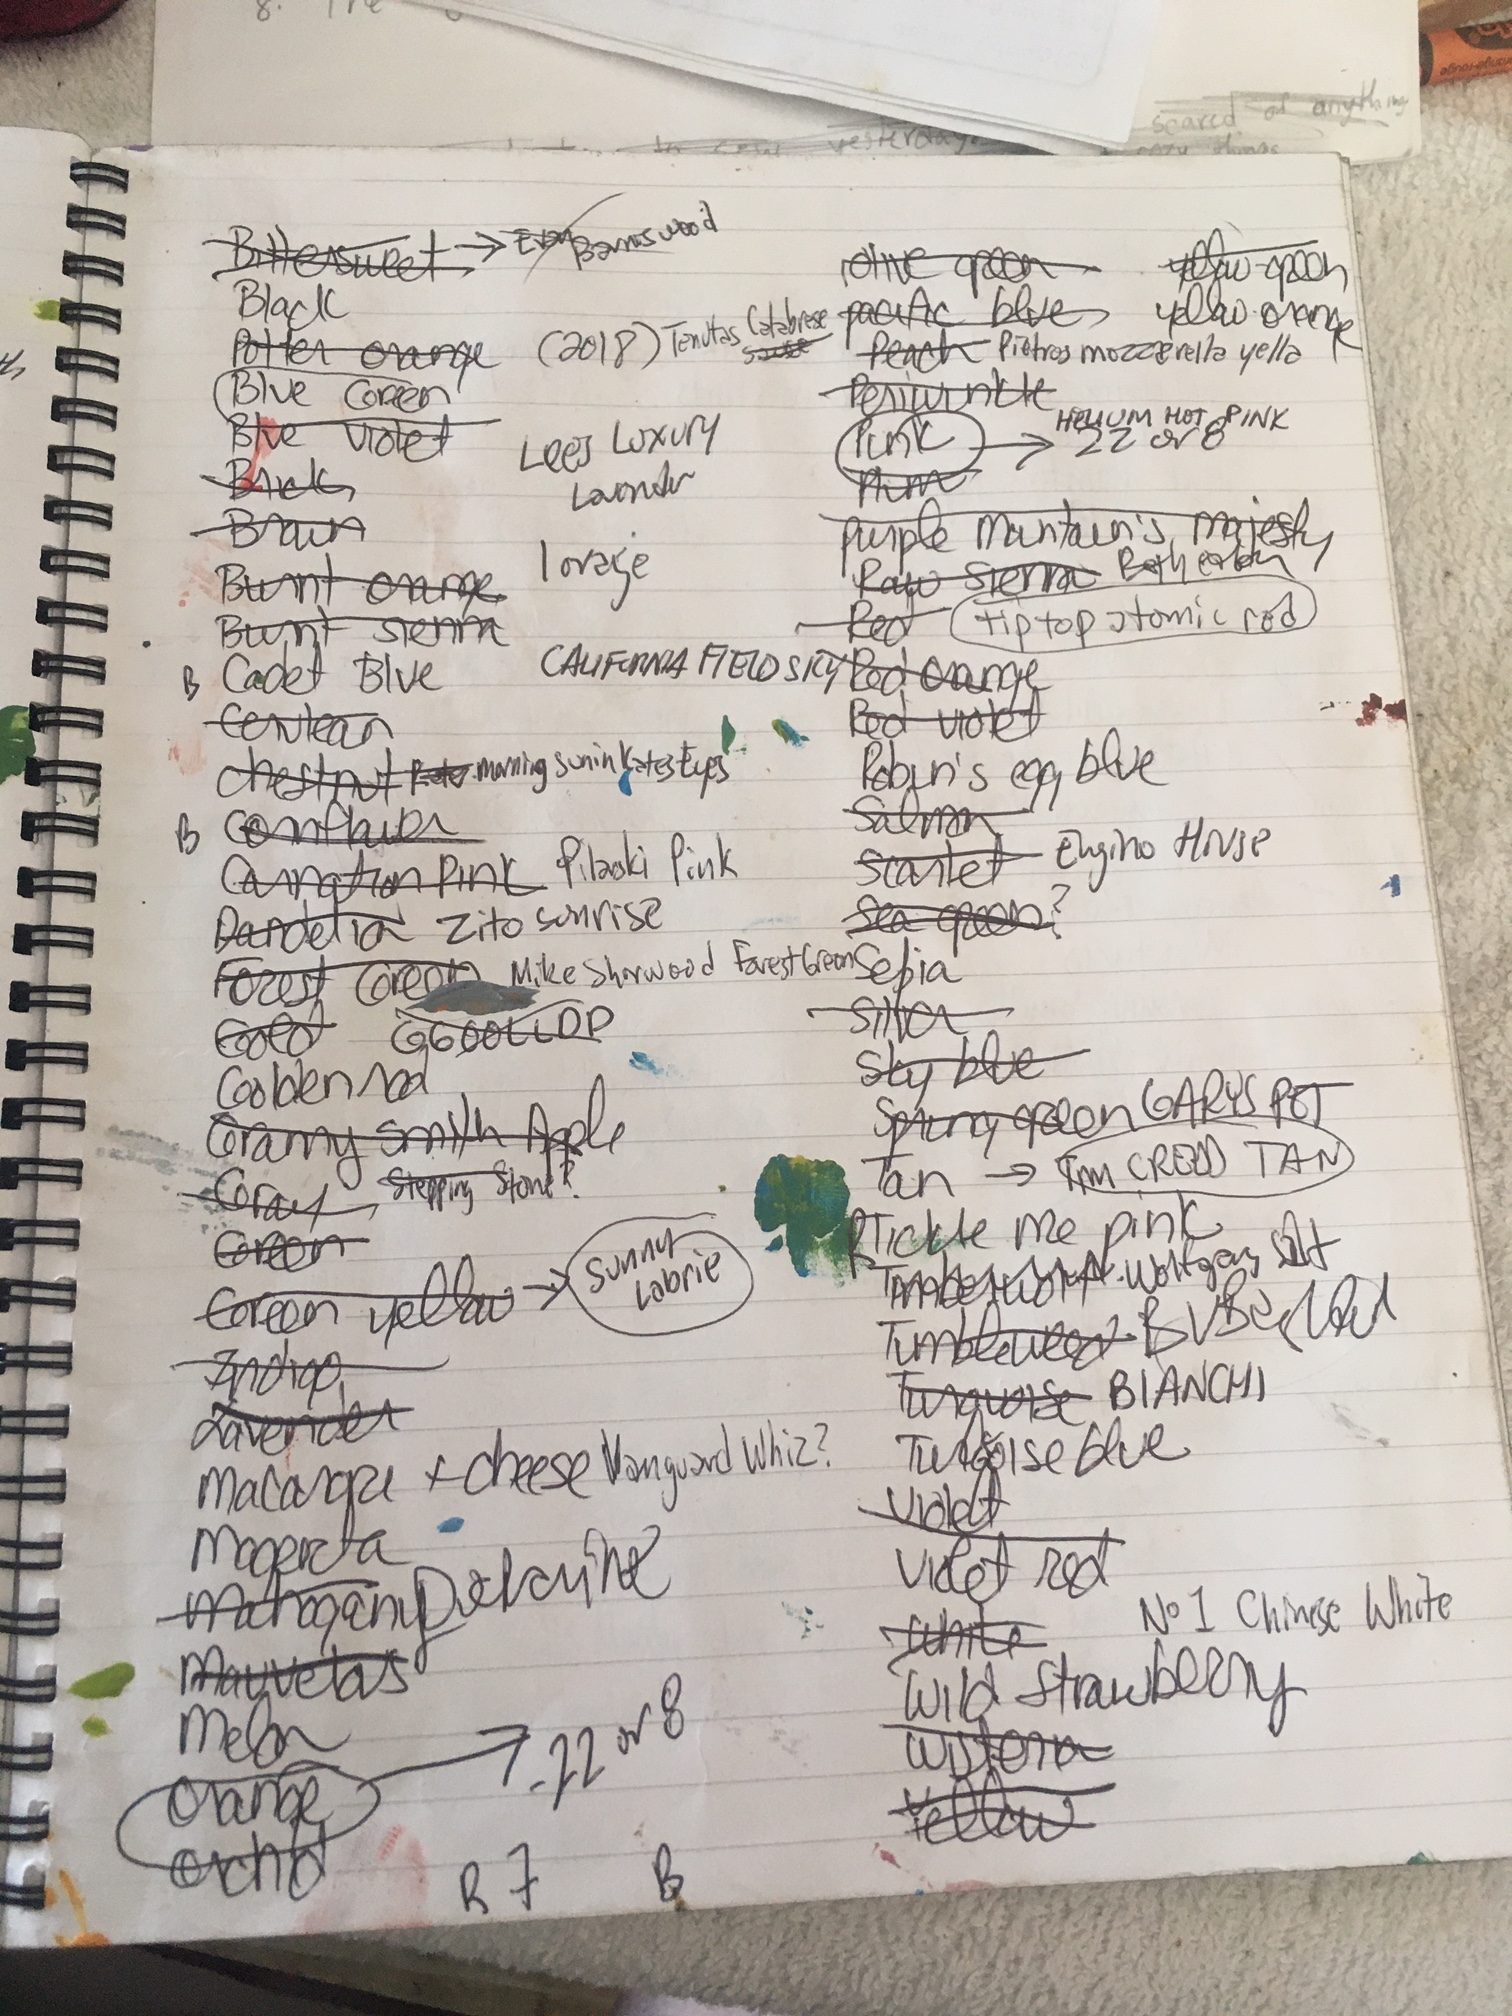 8. The
scared of anything
yesterday
cozy things
Bittersweet → Evan Barnswood
Black
Potter orange (2018) Tenutas Calabrese
Blue Green
Blue violet Lees Luxury
Lavender
Brick
Brown
lovage
Burnt orange
Burnt sienna
B Cadet Blue CALIFORNIA FIELD SKY
Cerulean
chestnut morning sun in Kates Eyes
B Cornflower
Carnation Pink Pilaski Pink
Dandelion Zito sunrise
Forest Green Mike Sherwood Forest Green
Gold G600LLDD
Goldenrod
Granny Smith Apple
Gray Stepping Stone?
Green
Green yellow → Sunny
Labrie
Indigo
Lavender
Macaroni + cheese Vanguard Whiz?
Magenta
Mahogany
Mauvelas
Melon
Orange → 22 or 8
orchid
R 7 B
olive green yellow-green
pacific blue yellow-orange
Peach Pietros mozzerella yella
Periwinkle
Pink → HELIUM HOT PINK
22 or 8
Plum
purple Mountain's majesty
Raw Sienna
Red tiptop atomic red
Red orange
Red violet
Robin's egg blue
Salmon
Scarlet Engine House
Sea green?
Sepia
Silver
Sky blue
Spring green GARYS POT
Tan → Tim CREED TAN
R Tickle me pink
Timberwolf Wolfgang Salt
Tumbleweed
Turquoise BIANCHI
Turqoise blue
violet
violet red
white No 1 Chinese White
Wild Strawberry
Wisteria
Yellow